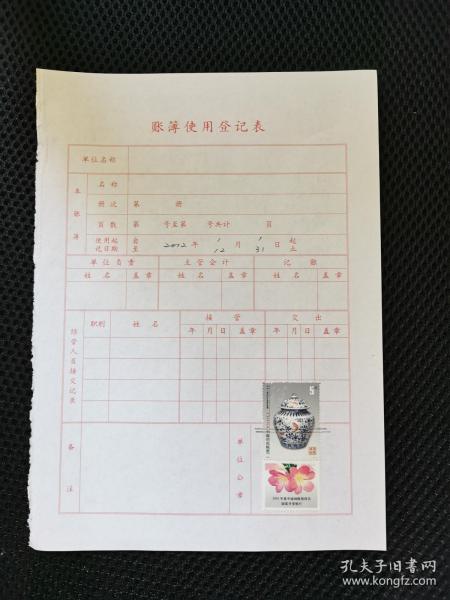 账簿使用登记表
单位名称
本账簿
名称
册次 第 册
页数 第 号至第 号共计 页
使用起记日期 自至 2012 年 1 12 月 1 31 日 起止
单位负责 主管会计 记账
姓名 盖章 姓名 盖章 姓名 盖章
经管人员接交记录
职别 姓名 接管 交出
年 月 日 盖章 年 月 日 盖章
备注
单位公章
5
孔夫子旧书网
www.kongfz.com